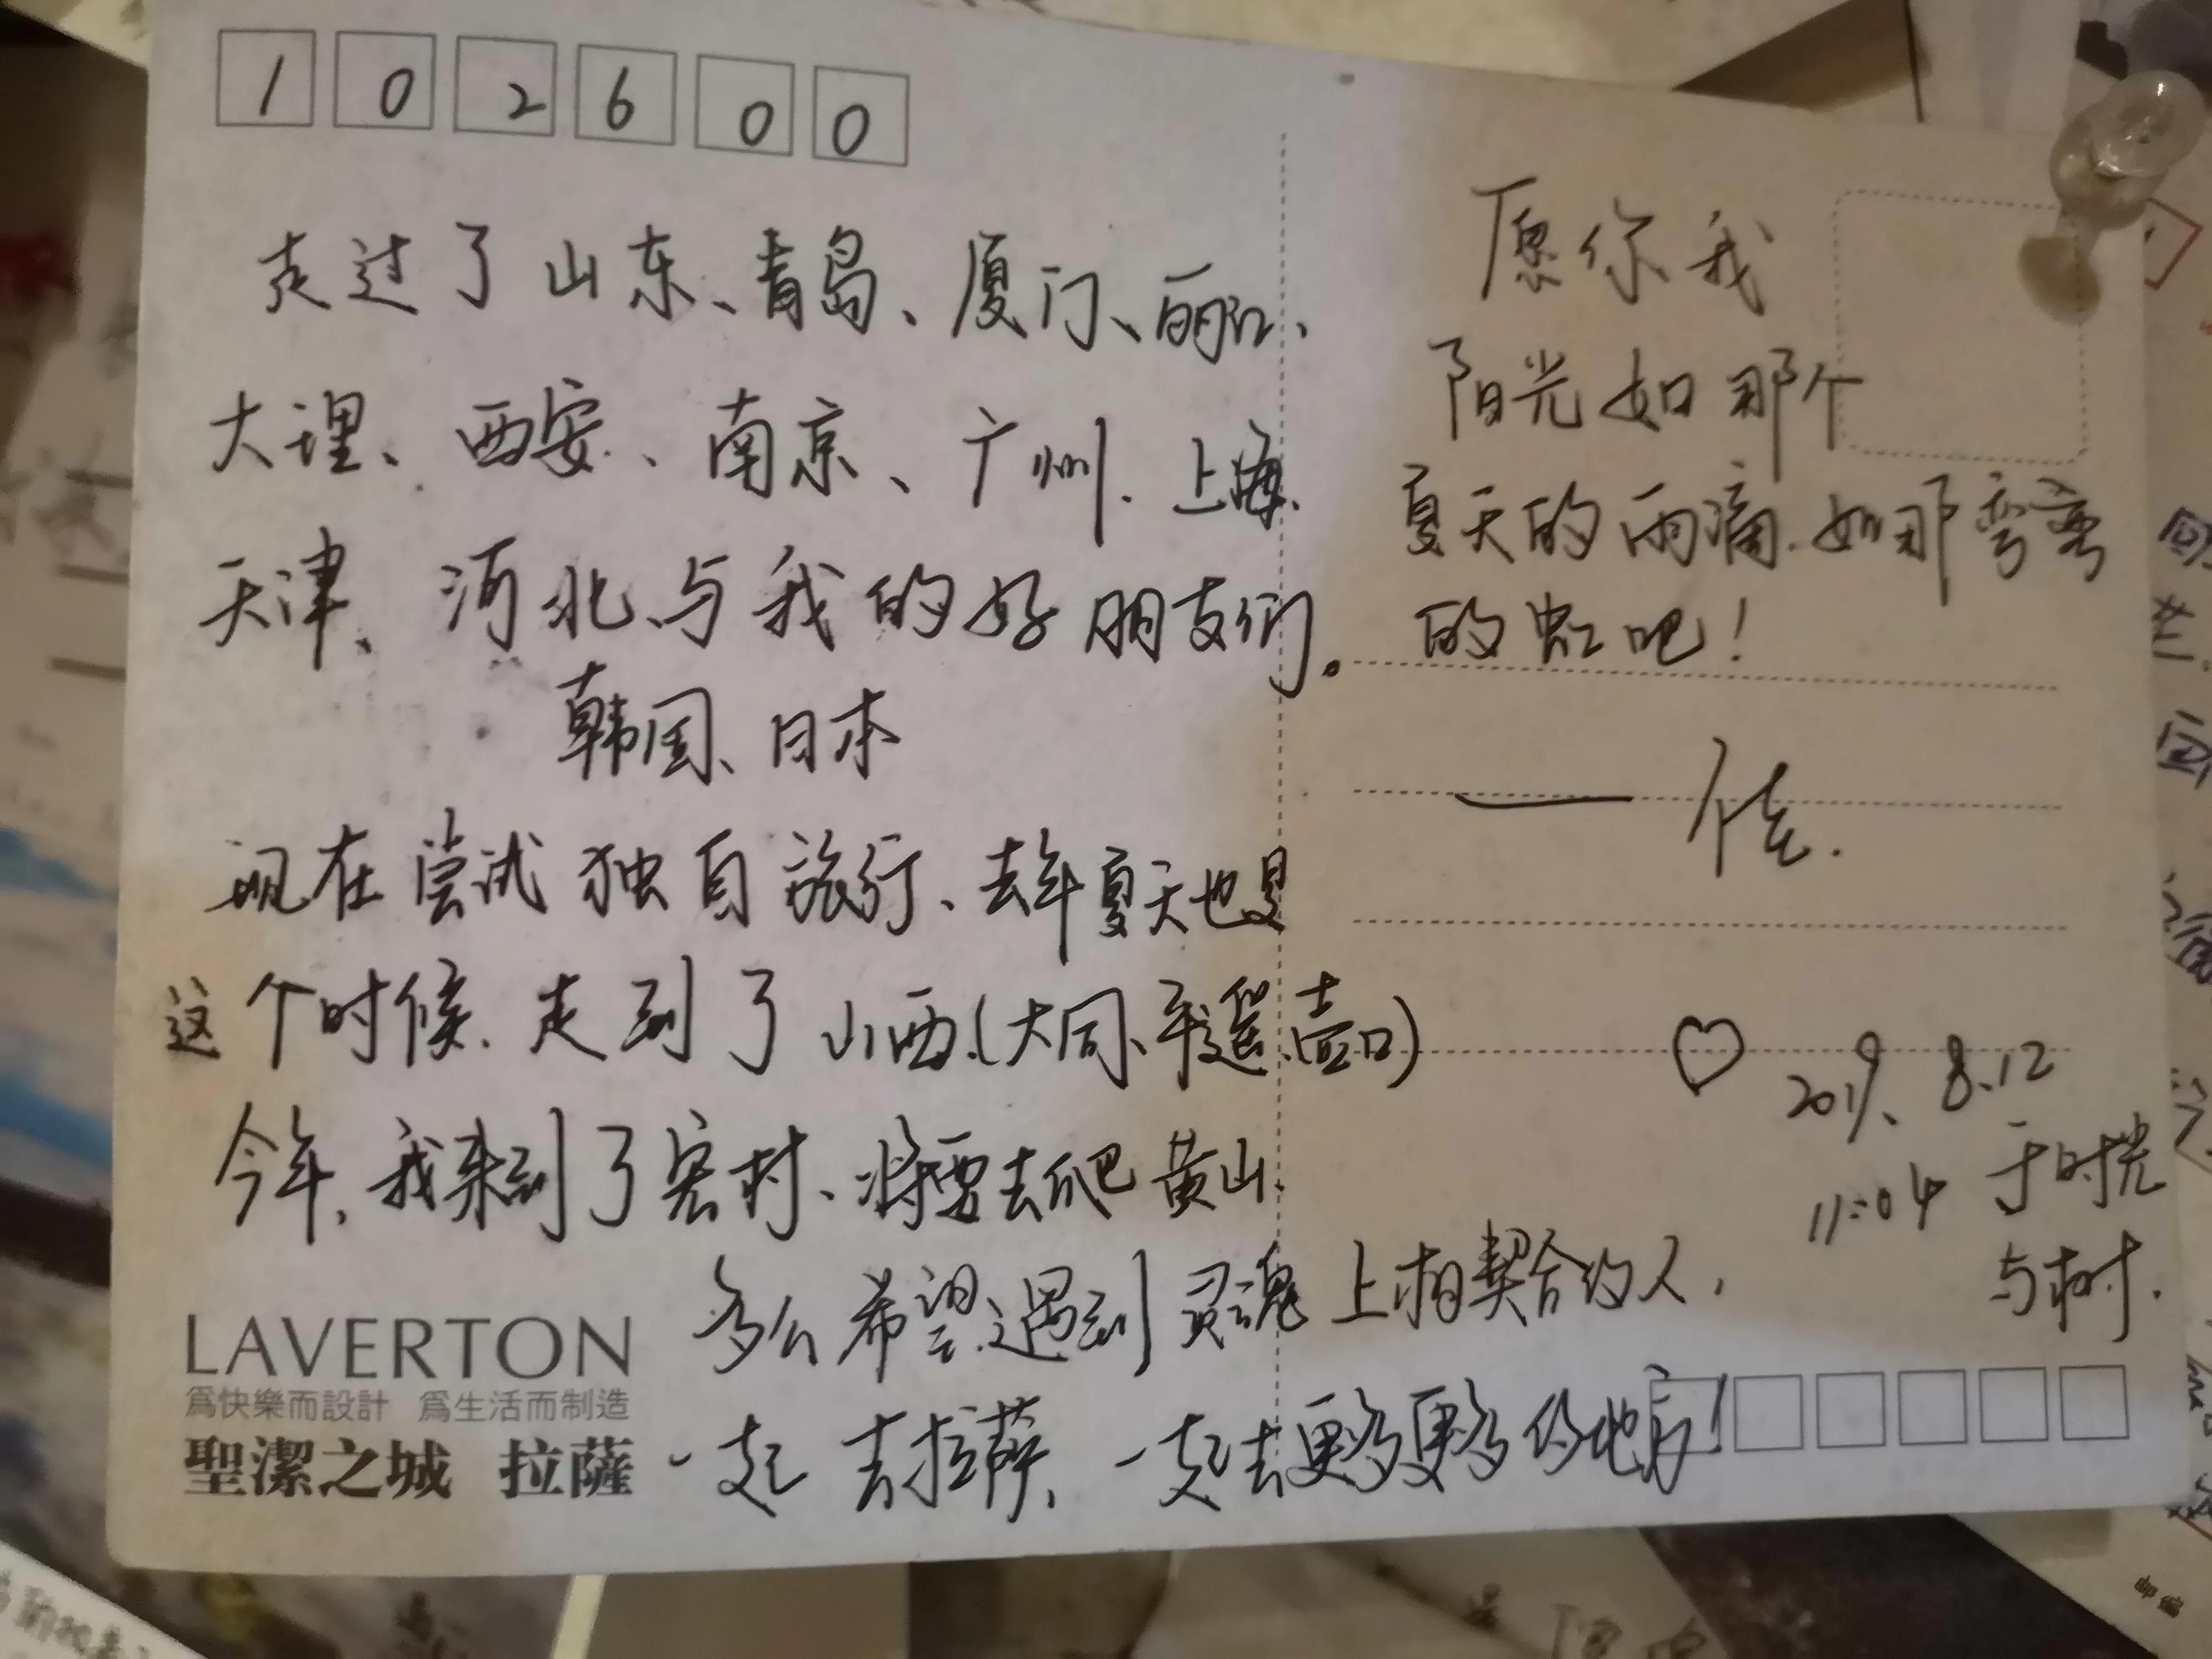 102600
走过了山东、青岛、厦门、丽江、
大理、西安、南京、广州、上海、
天津、河北、与我的好朋友们。
韩国、日本
现在尝试独自旅行、去年夏天也是
这个时候、走到了山西、(大同、平遥、壶口)
今年、我来到了宏村、将要去爬黄山、
多么希望遇到灵魂上相契合的人,
一起去拉萨、一起去更多更多的地方!
LAVERTON
為快樂而設計 為生活而制造
聖潔之城 拉薩
愿你我
阳光如那个
夏天的雨滴、如那弯弯
的虹吧!
2019、8.12
11:04 于时光
与树.
邮编